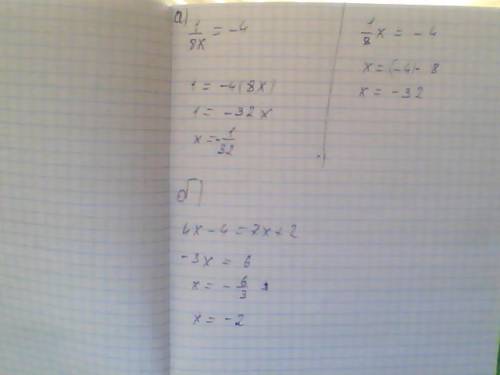 а)
1/8x = -4
1 = -4(8x)
1 = -32x
x = -1/32
1/8 x = -4
x = (-4)· 8
x = -32
б)
4x - 4 = 7x + 2
-3x = 6
x = -6/3
x = -2